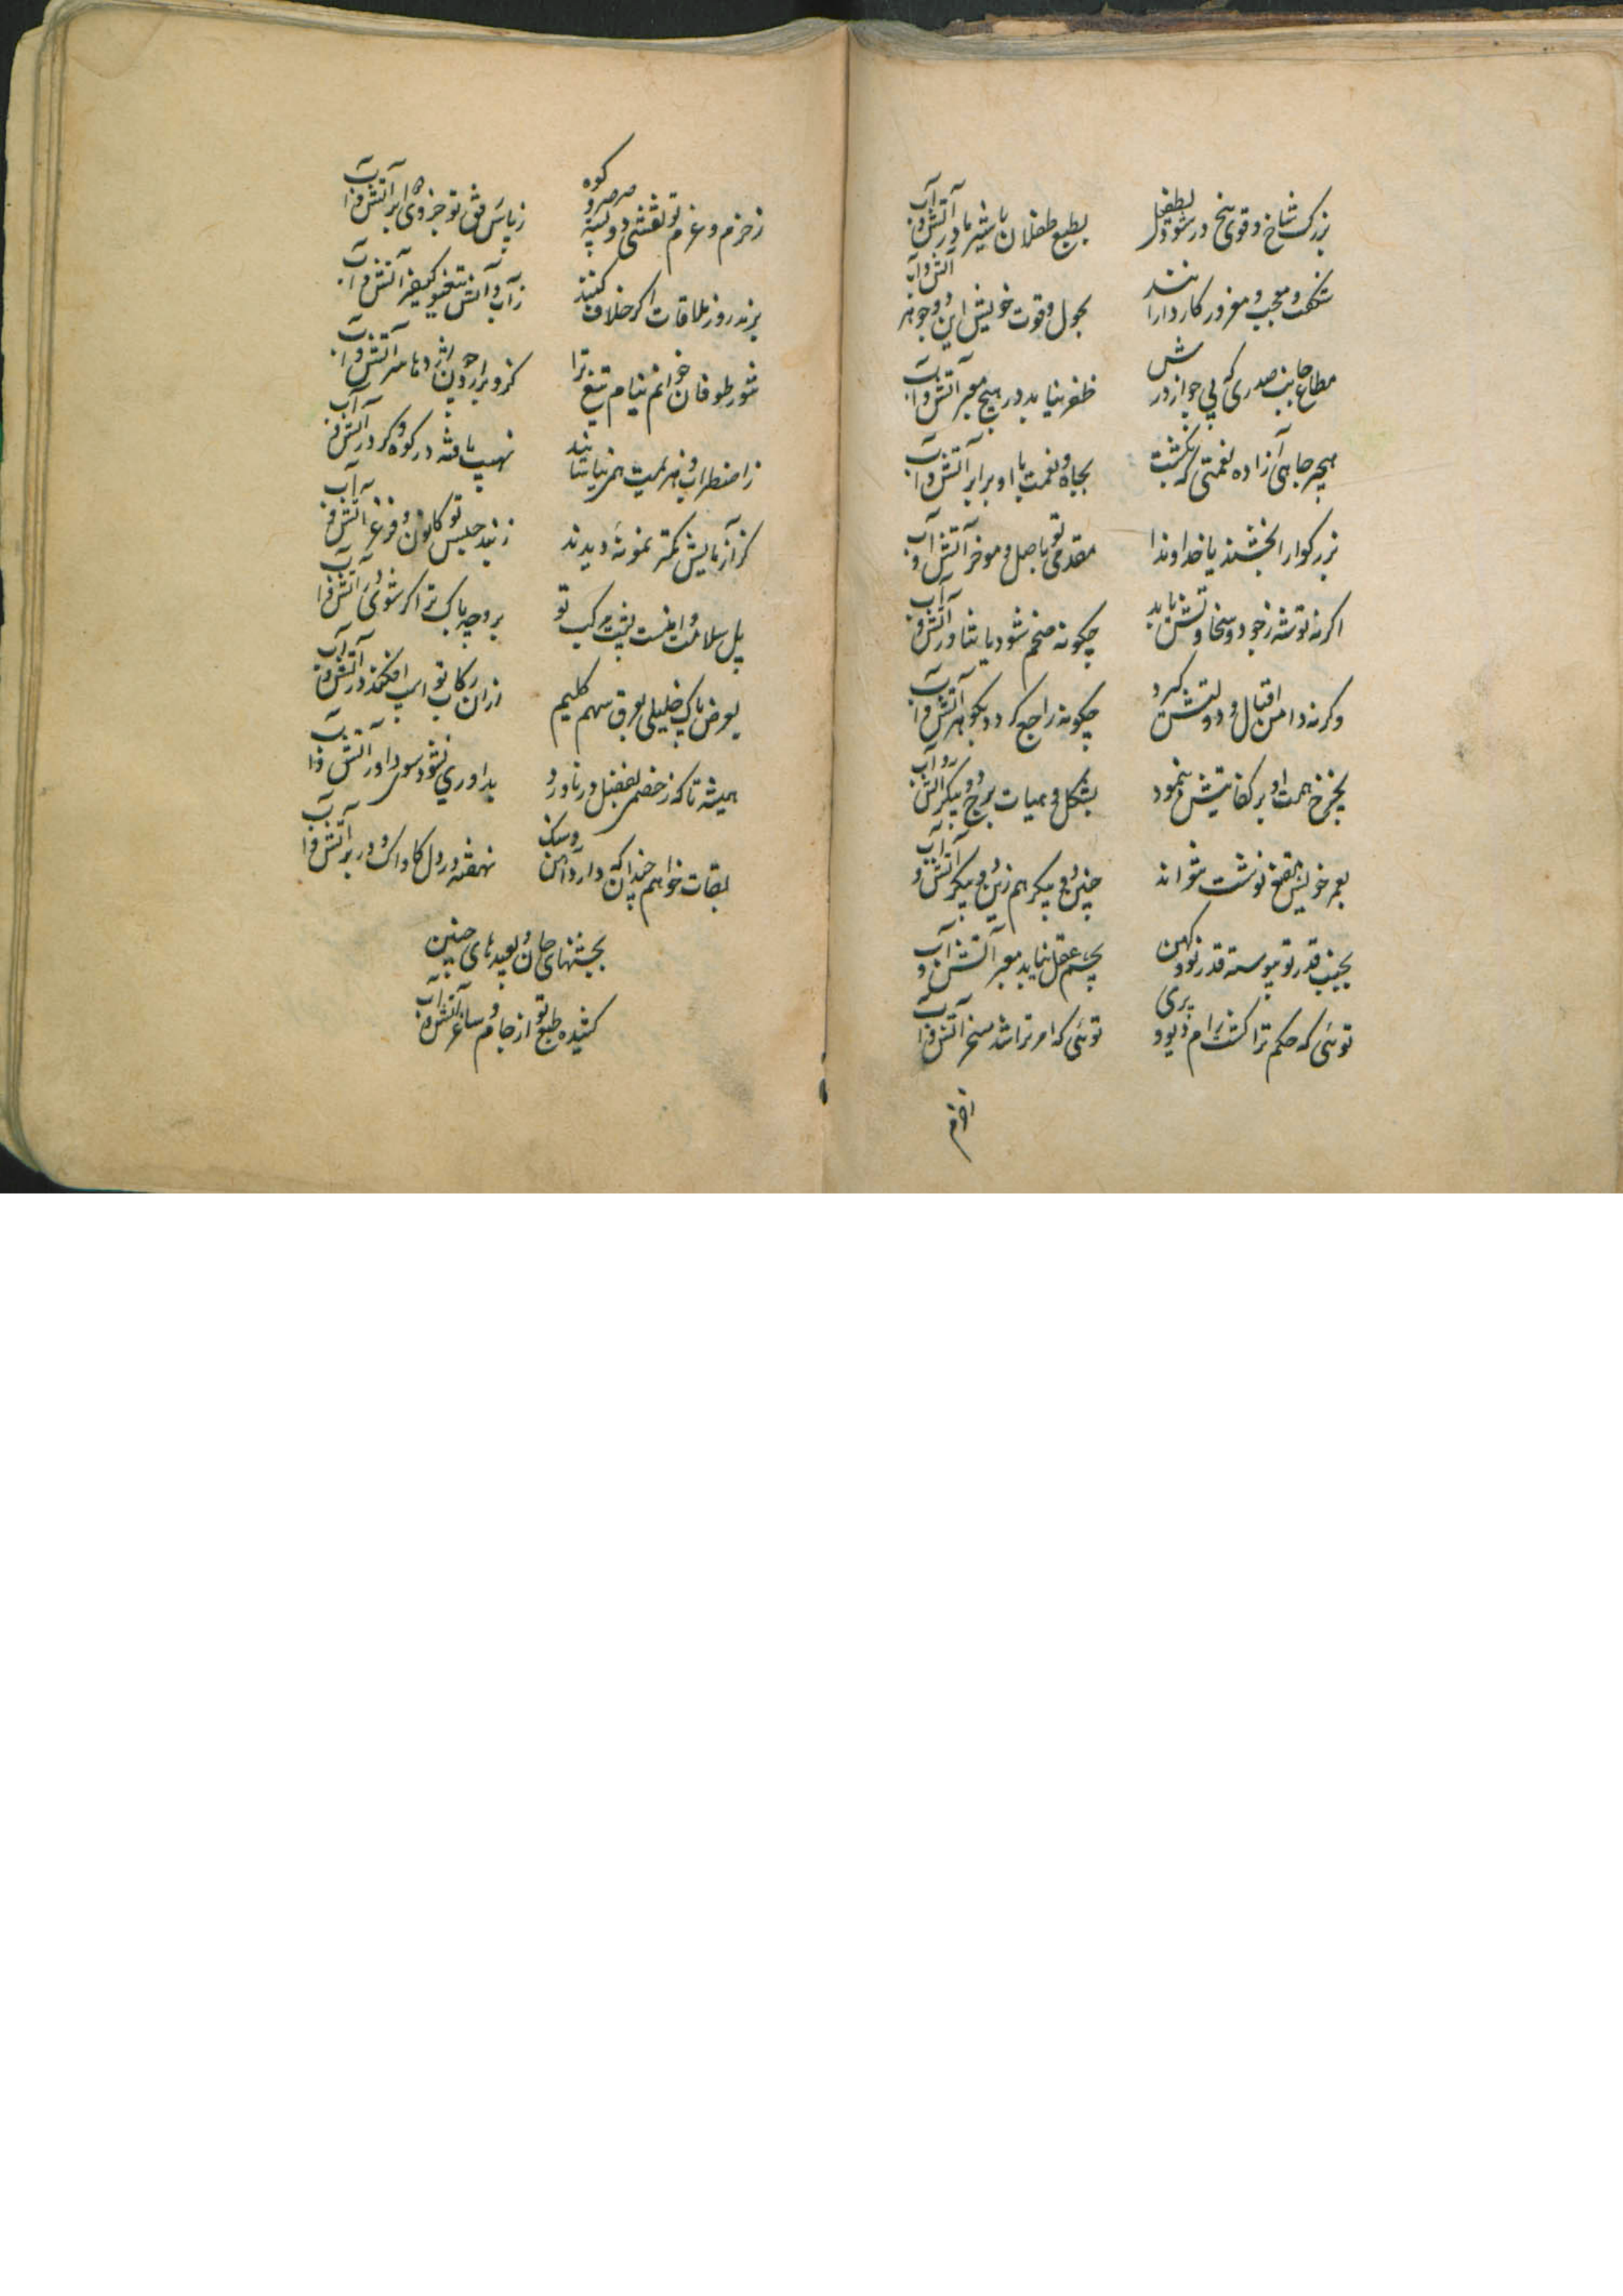 بزرک شاخ و قوی بیخ در شود بطفل
بطبع طفلان با شیر مادر آتش و آب
شکفت و معجب و مغرور کار دارانند
بحول و قوت خویش این دو جوهر آتش و آب
مطاع جانب صدری که بی جواز درش
ظفر نیابد در هیچ معبر آتش و آب
بجاه و نعمت با او برابر آتش و آب
بزرکوارا بخشنده یا خداوندا
مقدمی تو باصل و موخر آتش و آب
اکرنه توشه زجود و سخاوتش یابد
چکونه ضخم شود یا شناور آتش و آب
وکرنه دامن اقبال و دولتش کیرد
چکونه راجع کردد بکوهر آتش و آب
بچرخ همت او بر کفایتش بنمود
بشکل و هیات برج دو پیکر آتش و آب
بعمر خویش نوشت نتواند
چنین دو پیکر هم زین دو پیکر آتش و آب
بجنب قدر تو پیوسته قدر نو و کهن
بچشم عقل نیاید معبر آتش و آب
توئی که حکم ترا کشت رام دیو و پری
توئی که امر ترا شد مسخر آتش و آب
زحزم و عزم تو نقشی دو بسته صرصر و کوه
زباس تو جزوی برابر آتش و آب
برند روز ملاقات اکر خلاف کنند
زآب و آتش تیغ تو کیفر آتش و آب
تنور طوفان خوانم نیام تیغ ترا
کزو برآرد چون اژدها سر آتش و آب
زاضطراب و هزیمت همی نیاسایند
نهیب یافته در کوه و کردر آتش و آب
کز آزمایش کمتر نمونه دیدند
پل سلامت و امنست پشت مرکب تو
بروچه باک ترا کر شود در آتش و آب
بعرض پاک خلیلی بعرق سهم کلیم
ازان رکاب تو اسب افکند در آتش و آب
همیشه تا که زخصمی بفضل در ناورد
بداوری نشود سوی داور آتش و آب
بقات خواهم چندانکه دارد آهن و سنک
نهفته در دل کاواک و در بر آتش و آب
بجشنهای چنان و بعیدهای چنین
کشیده طبع تو از جام و ساغر آتش و آب